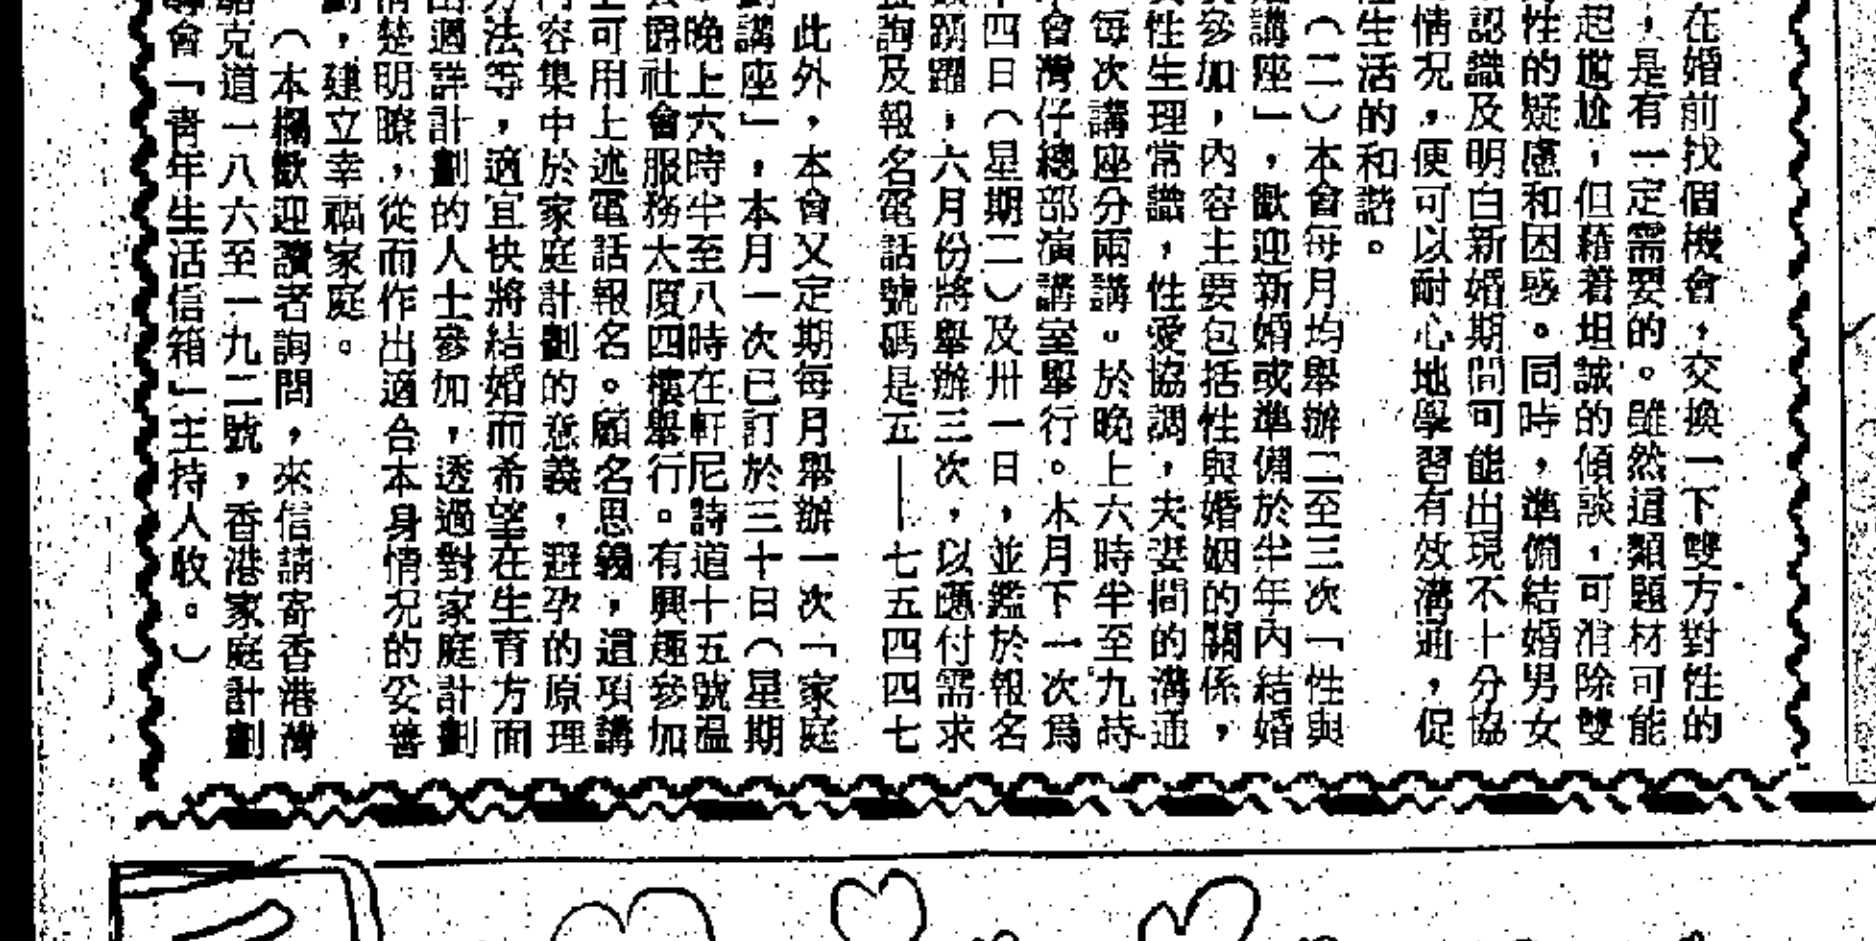 在婚前找個機會，交換一下雙方對性的
，是有一定需要的。雖然這類題材可能
起尷尬，但藉着坦誠的傾談，可消除雙
性的疑慮和困惑。同時，準備結婚男女
認識及明白新婚期間可能出現不十分協
情況，便可以耐心地學習有效溝通，促
生活的和諧。
（二）本會每月均舉辦二至三次「性與
講座」，歡迎新婚或準備於半年內結婚
參加，內容主要包括性與婚姻的關係，
性生理常識，性愛協調，夫妻間的溝通
每次講座分兩講。於晚上六時半至九時
會灣仔總部演講室舉行。本月下一次爲
四日（星期二）及卅一日，並鑑於報名
踴躍，六月份將舉辦三次，以應付需求
詢及報名電話號碼是五——七五四四七
此外，本會又定期每月舉辦一次「家庭
講座」，本月一次已訂於三十日（星期
晚上六時半至八時在軒尼詩道十五號溫
爵社會服務大廈四樓舉行。有興趣參加
可用上述電話報名。顧名思義，這項講
容集中於家庭計劃的意義，避孕的原理
法等，適宜快將結婚而希望在生育方面
過詳計劃的人士參加，透過對家庭計劃
楚明瞭，從而作出適合本身情況的妥善
，建立幸福家庭。
（本欄歡迎讀者詢問，來信請寄香港灣
克道一八六至一九二號，香港家庭計劃
會「青年生活信箱」主持人收。）